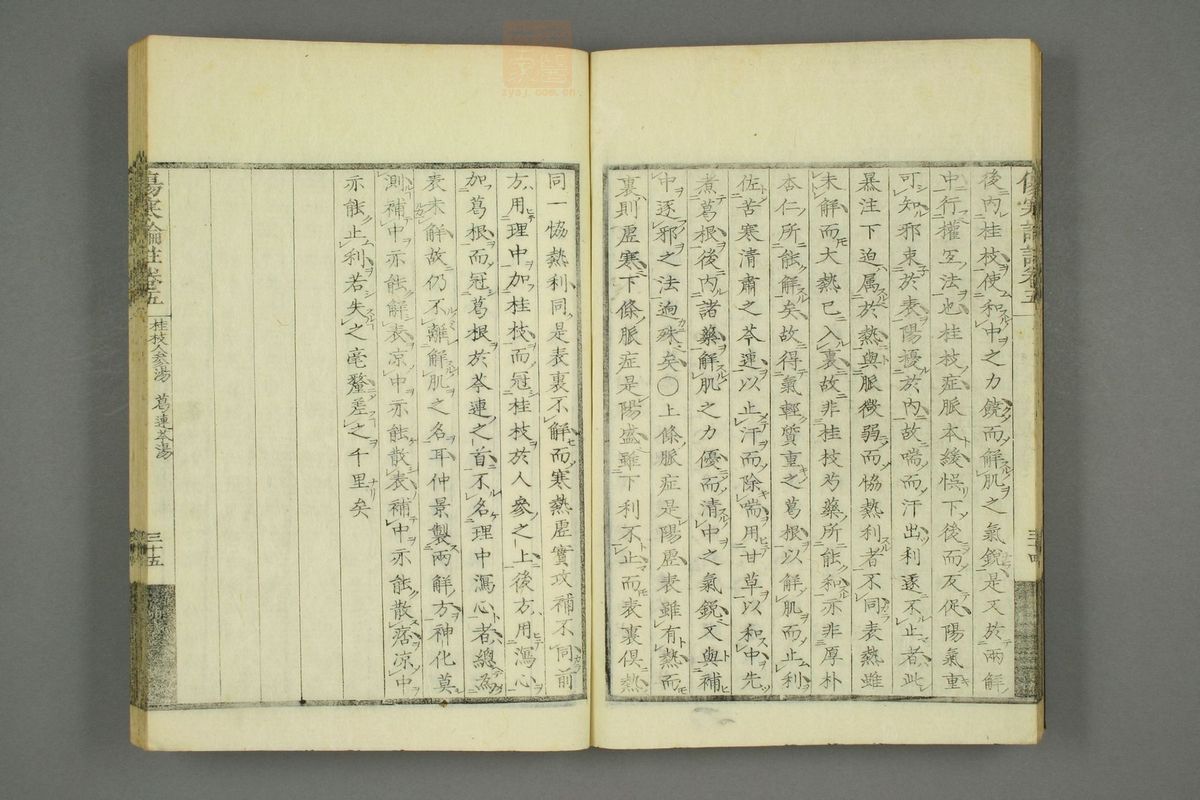 後內桂枝使和中之力饒而解肌之氣銳是又於兩解
中行權宜法也桂枝症脈本緩悞下後而反促陽氣重
可知邪束於表陽擾於內故喘而汗出利遂不止者此
暴注下迫属於熱與脈微弱而恊熱利者不同表熱雖
未解而大熱已入裏故非桂枝芍藥所能和亦非厚朴
杏仁所能解矣故得氣輕質重之葛根以解肌而止利
佐苦寒清肅之芩連以止汗而除喘用甘草以和中先
煮葛根後內諸藥解肌之力優而清中之氣銳又與補
中逐邪之法逈殊矣○上條脈症是陽虛表雖有熱而
裏則虛寒下條脈症是陽盛雖下利不止而表裏俱熱
三十四
傷寒論註卷五
桂枝人參湯 葛連芩湯
三十五
同一恊熱利同是表裏不解而寒熱虛實攻補不同前
方用理中加桂枝而冠桂枝於人參之上後方用瀉心
加葛根而冠葛根於芩連之首不名理中瀉心者總為
表未解故仍不離解肌之名耳仲景製兩解方神化莫
測補中亦能解表凉中亦能散表補中亦能散痞凉中
亦能止利若失之毫釐差之千里矣
zysj.com.cn